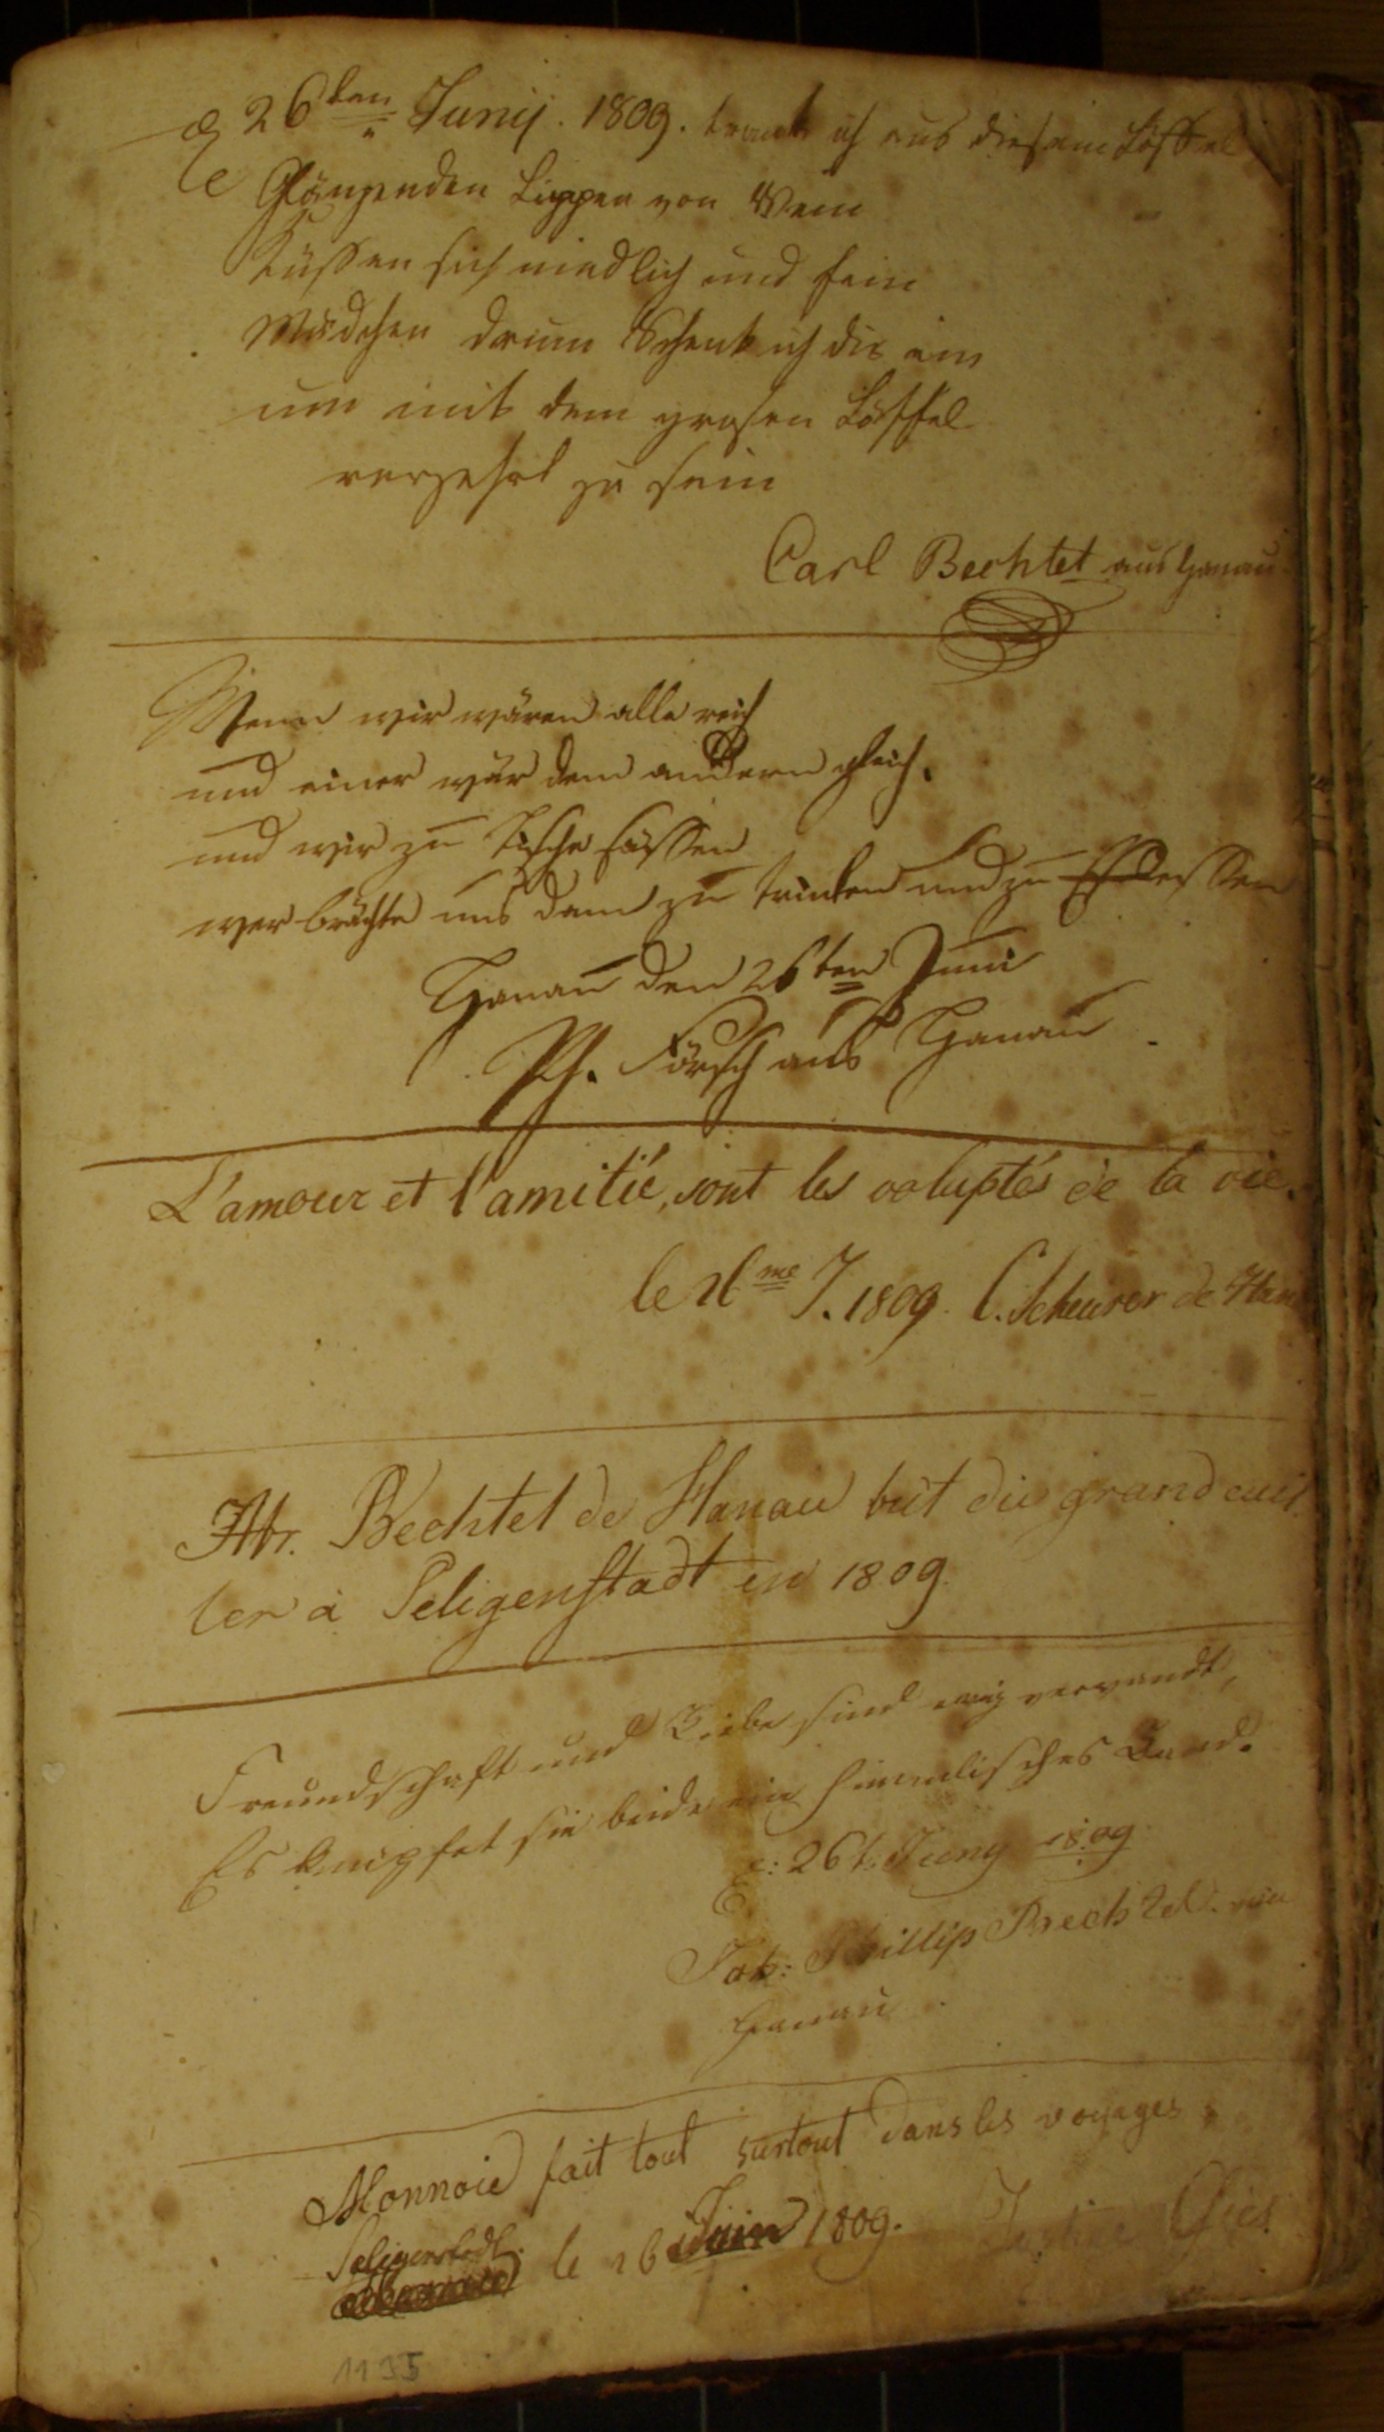 d 26ten Junÿ. 1809. trank ich aus diesem Löffel
Glänzenden Lippen von Wein
Küssen sich niedlich und fein
Mädchen drum Schenk ich dir ein
um mit dem grosen Löffel
verzehrt zu sein
Carl Bechtel aus Hanau
Wenn wir wären alle reich
und einer wär dem andern gleich.
und wir zu Tische sässen
wer brächte uns dann zu trinken und zu essen
Hanau den 26ten Juni
Ph. Försch aus Hanau
L'amour et l'amitié, sont les voluptés de la vie.
le 26me J. 1809. C. Scheurer de Han
Abr. Bechtel de Hanau but du grand cuil
ler a Seligenstadt en 1809.
Freundschaft und Liebe sind ewig verwandt,
Es knüpfet sie beide ein himmlisches Band.
d: 26t. Juny 1809
Joh: Phillip Bechtel. von
Hanau
Monnoie fait tout surtout dans les voyages
Seligenstadt.
le 26 Juin 1809.
1135